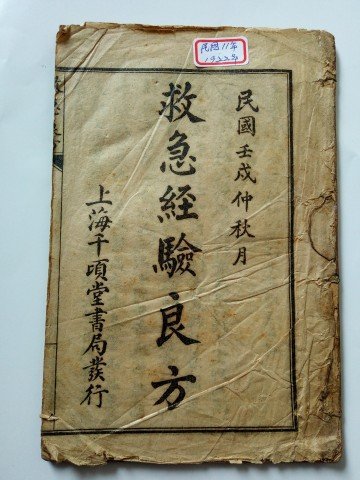 民国11年
1922年
民國壬戌仲秋月
救急経驗良方
上海千頃堂書局發行